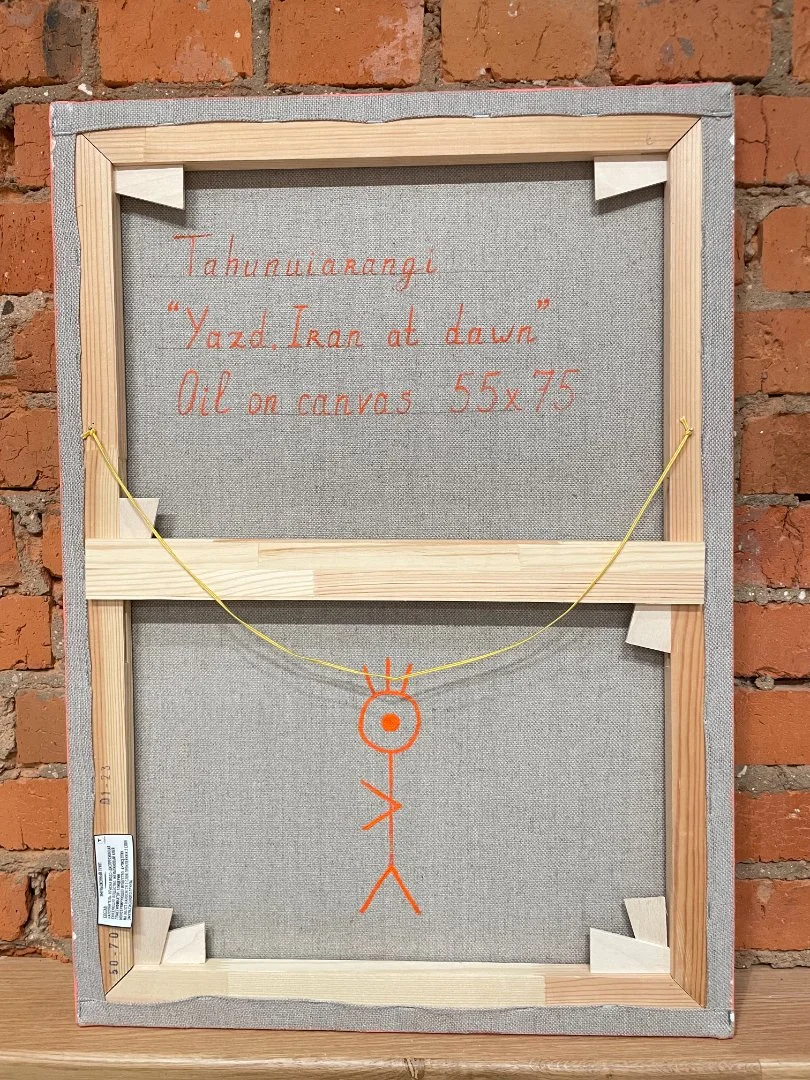 Tahunuiarangi
"Yazd. Iran at dawn"
Oil on canvas 55x75
01-23
50-70